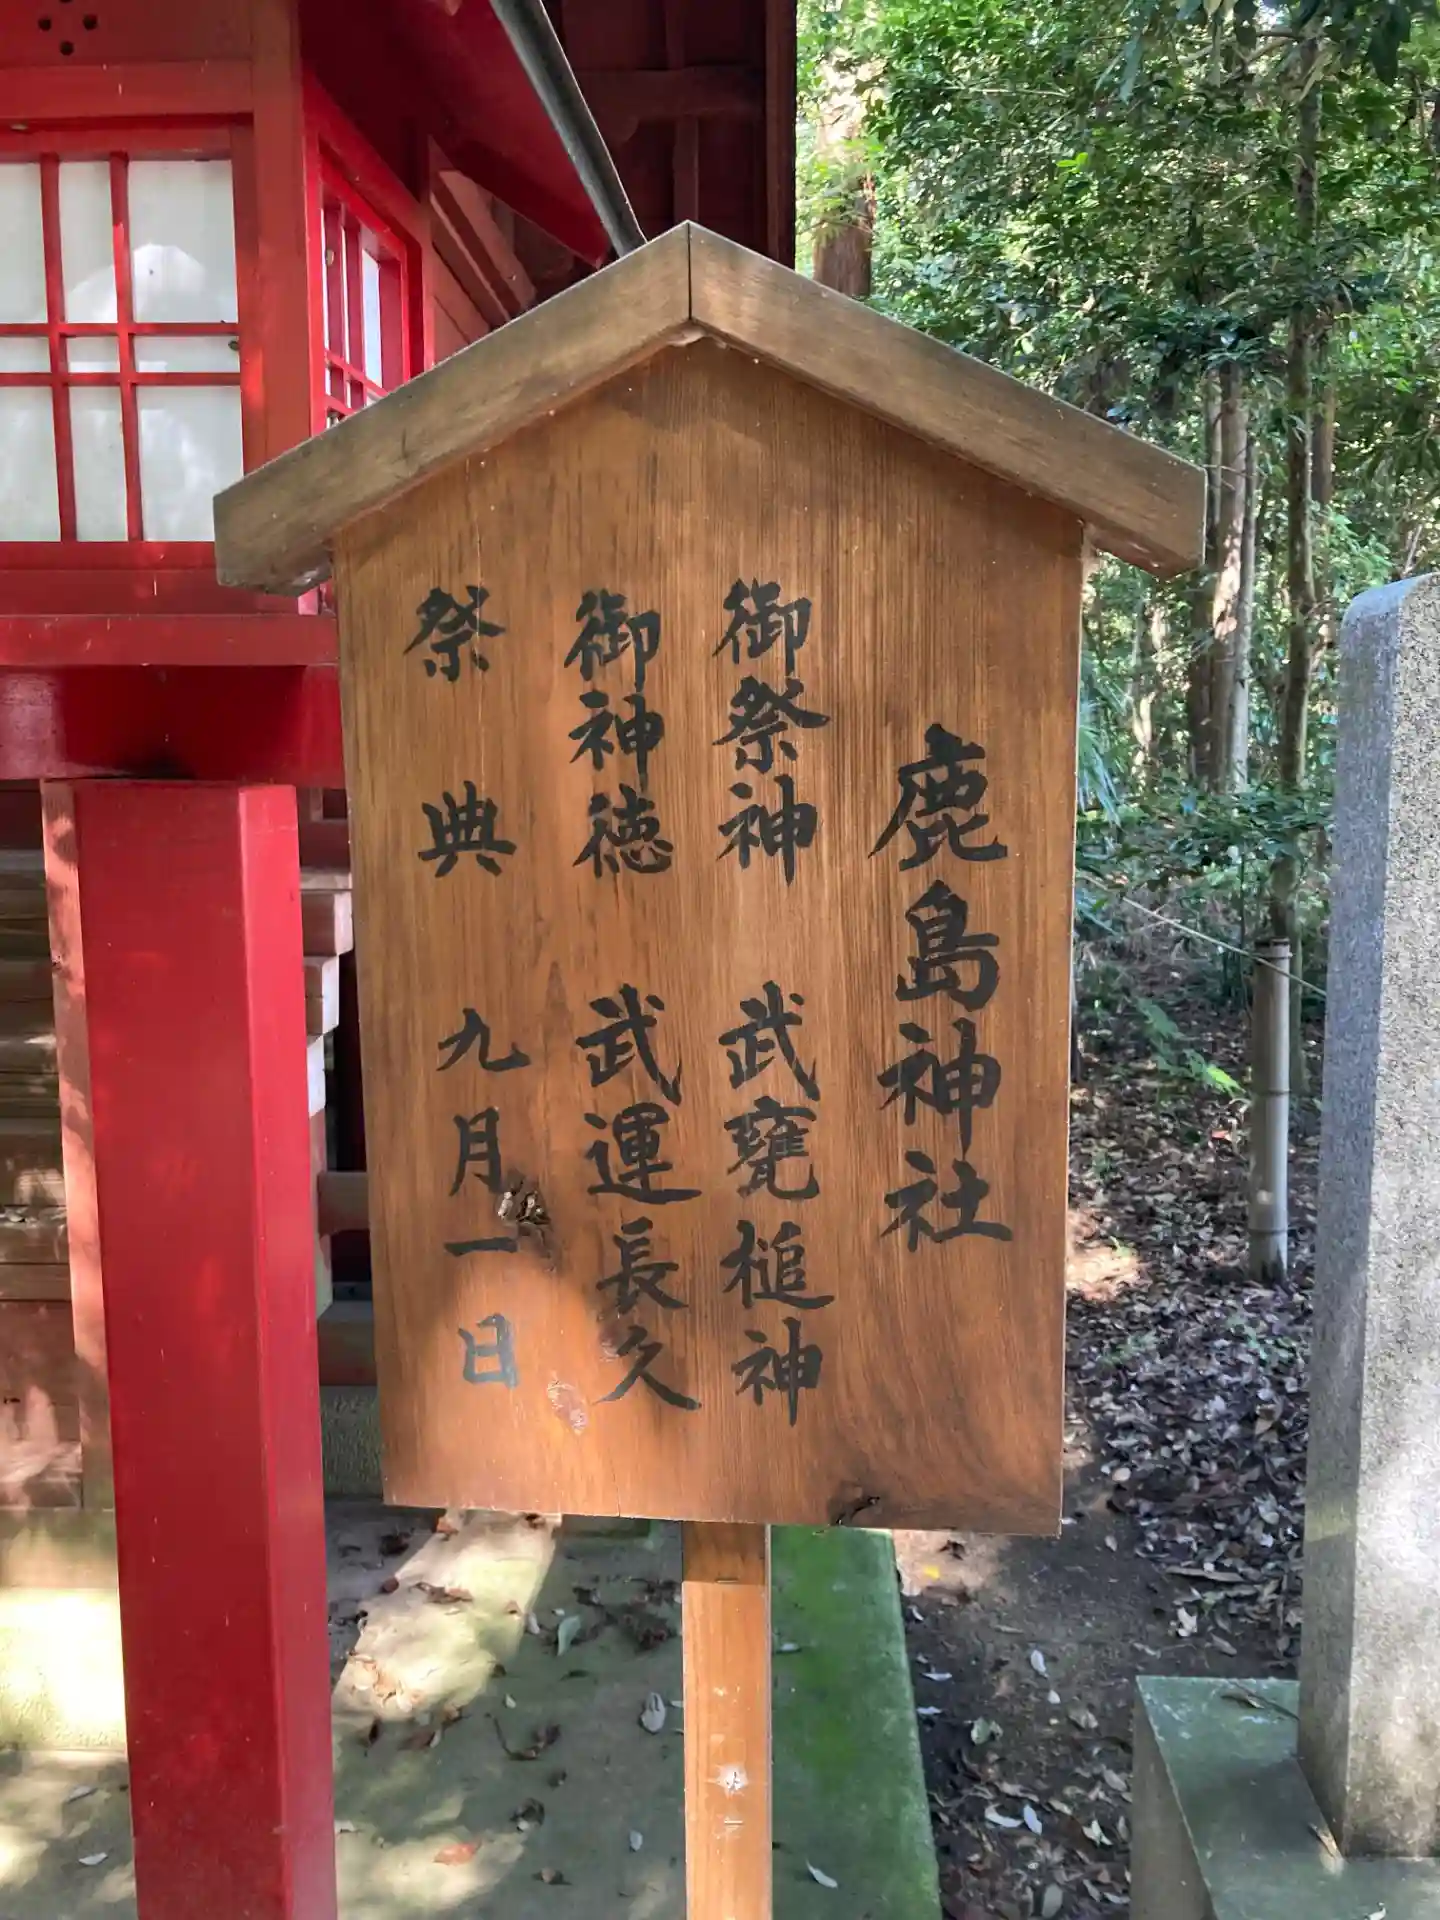 鹿島神社
御祭神 武甕槌神
御神徳 武運長久
祭典 九月一日